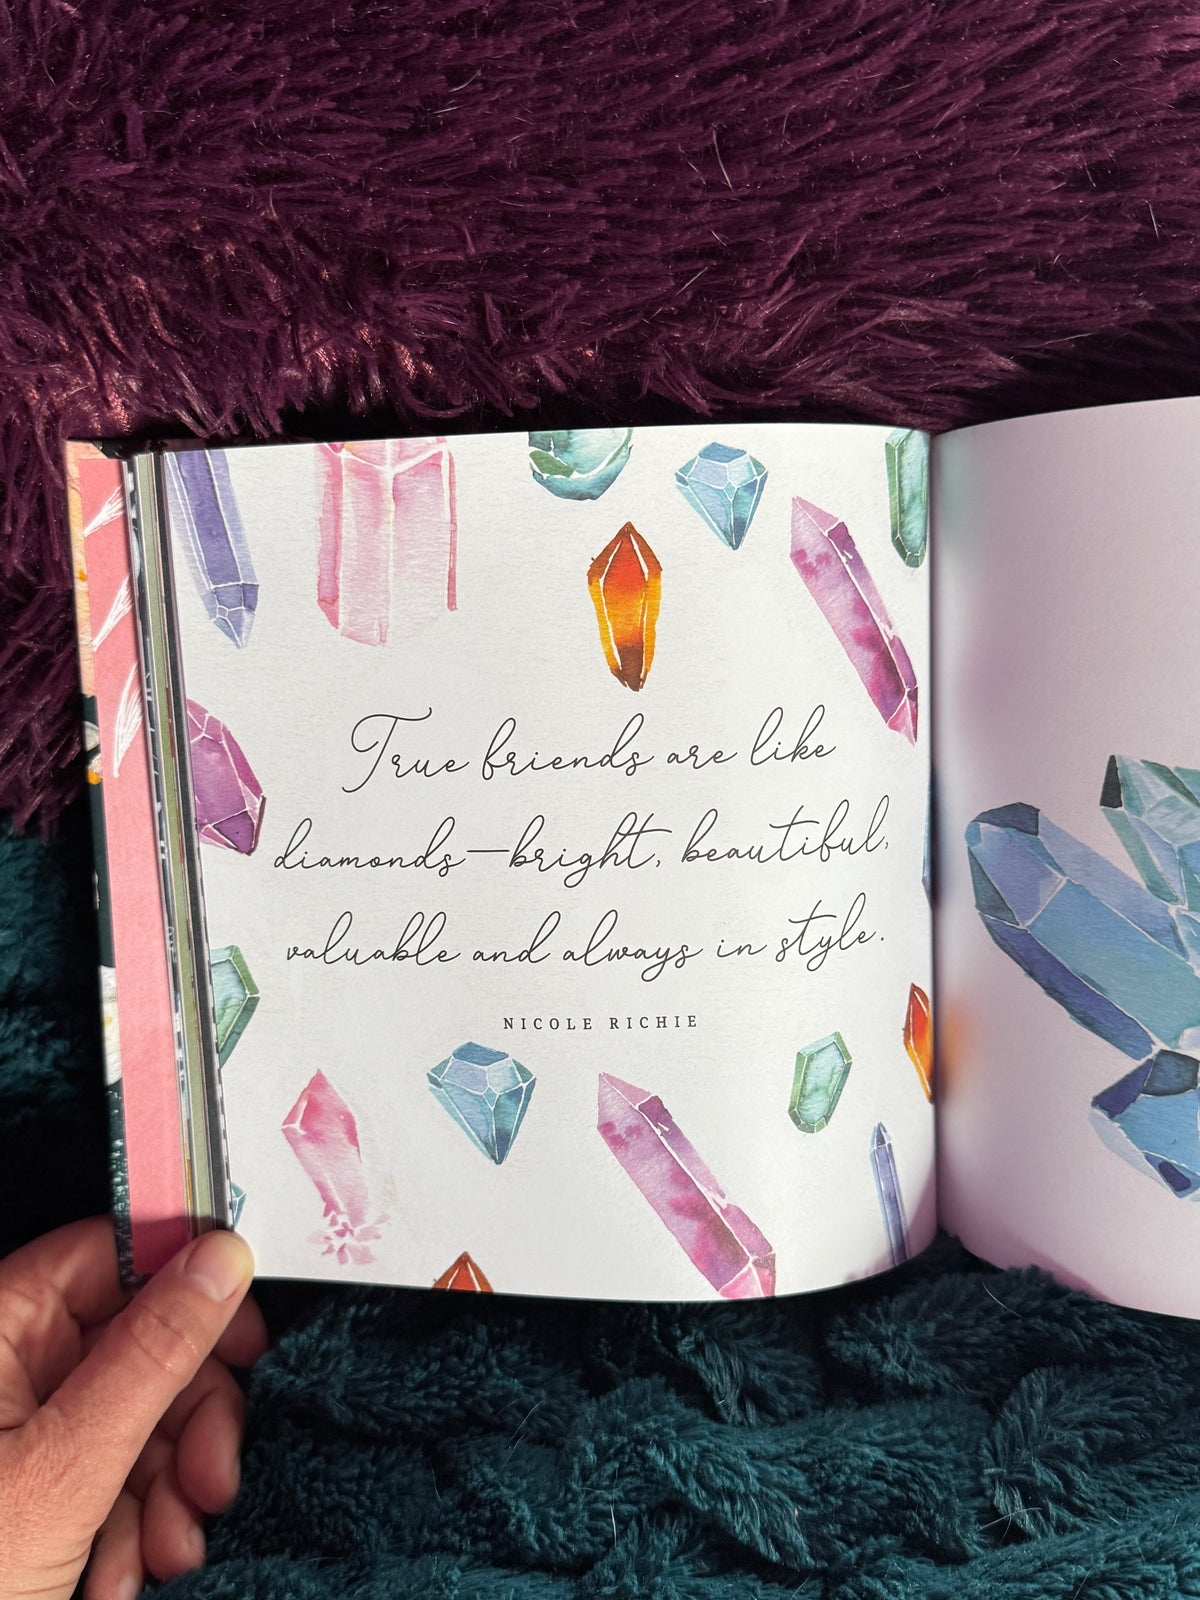 True friends are like
diamonds—bright, beautiful,
valuable and always in style.
NICOLE RICHIE